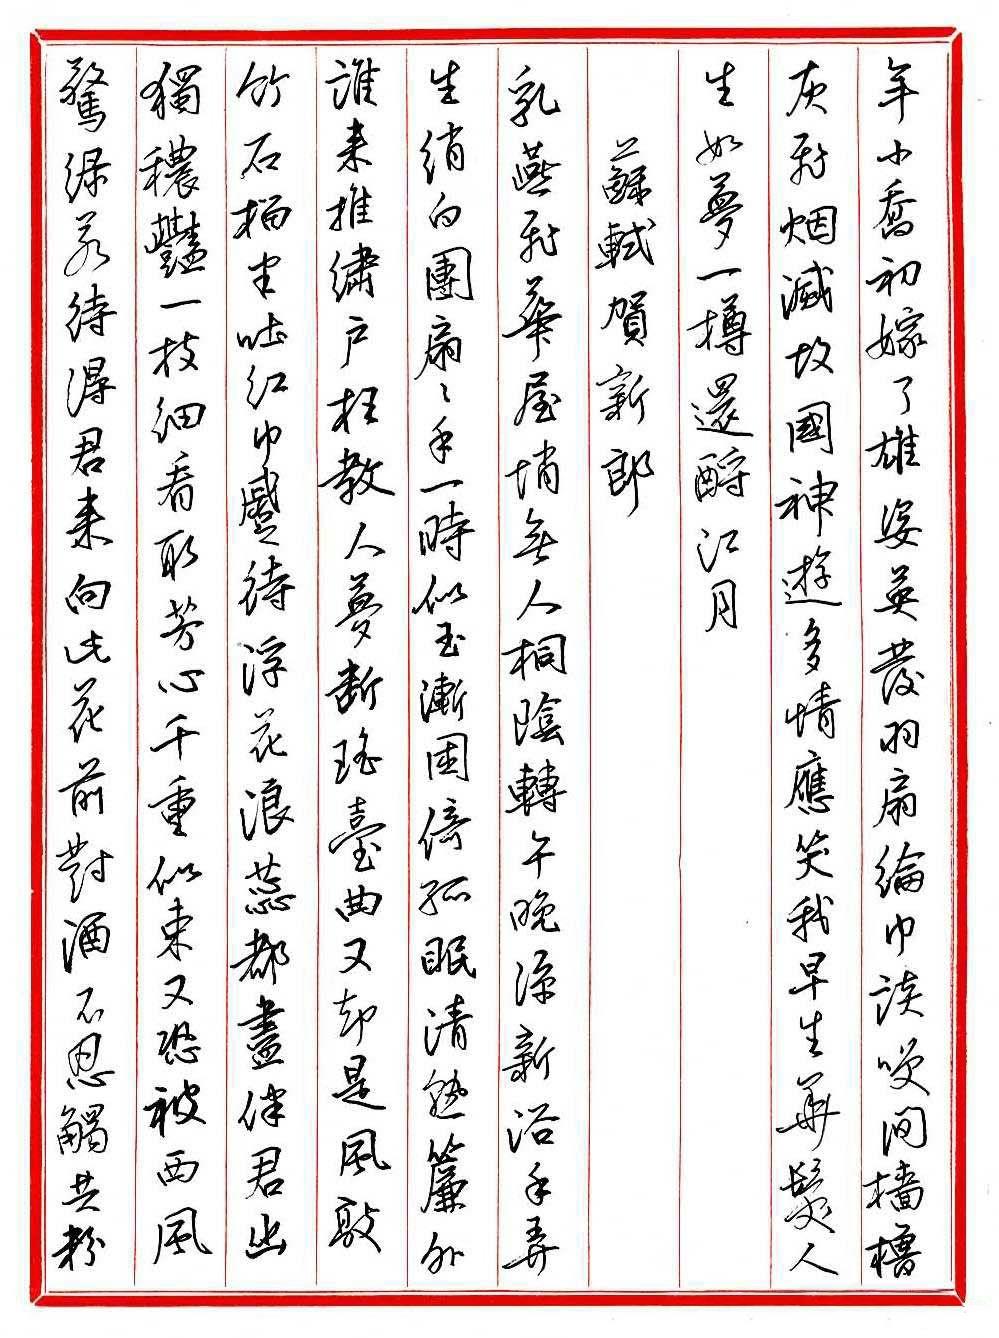 年小喬初嫁了雄姿英發羽扇綸巾談笑間檣櫓
灰飛烟滅故國神遊多情應笑我早生華髮人
生如夢一樽還酹江月
蘇軾賀新郎
乳燕飛華屋悄無人桐陰轉午晚涼新浴手弄
生綃白團扇〻手一時似玉漸困倚孤眠清熟簾外
誰来推繡户枉教人夢斷瑤臺曲又却是風敲
竹石榴半吐紅巾蹙待浮花浪蕊都盡伴君幽
獨穠豔一枝細看取芳心千重似束又恐被西風
驚绿若待得君来向此花前對酒不忍觸共粉